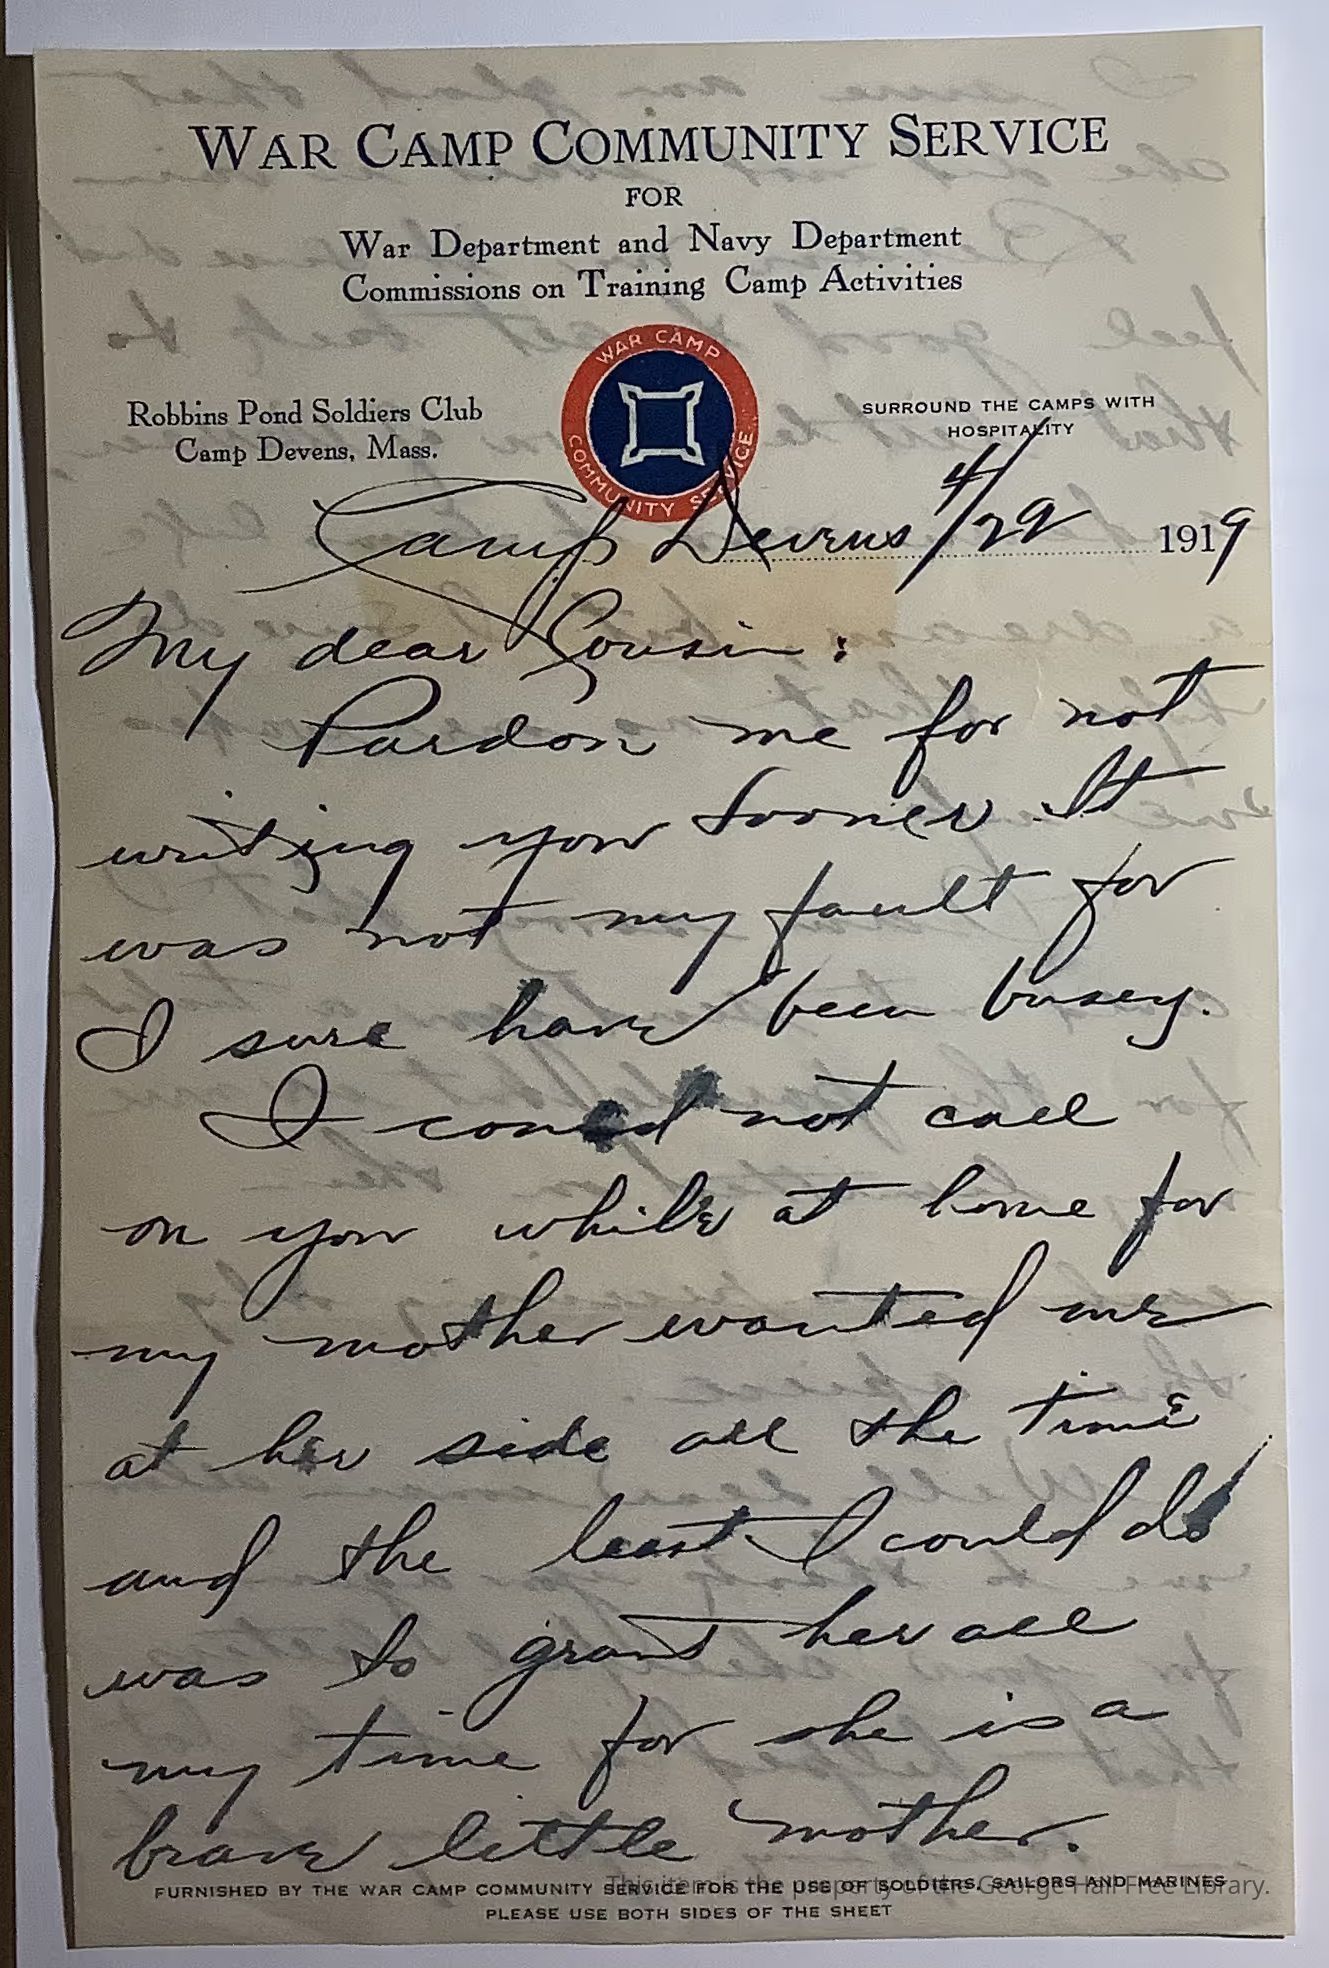 WAR CAMP COMMUNITY SERVICE
FOR
War Department and Navy Department
Commissions on Training Camp Activities
WAR CAMP
COMMUNITY SERVICE
Robbins Pond Soldiers Club
Camp Devens, Mass.
SURROUND THE CAMPS WITH
HOSPITALITY
Camp Devens 4/29 1919
My dear Cousin:
Pardon me for not
writing you sooner. It
was not my fault for
I sure have been busey.
I could not call
on you while at home for
my mother wanted me
at her side all the time
and the least I could do
was to grant her all
my time for she is a
brave little mother.
This item is the property of the George Hail Free Library.
FURNISHED BY THE WAR CAMP COMMUNITY SERVICE FOR THE USE OF SOLDIERS, SAILORS AND MARINES
PLEASE USE BOTH SIDES OF THE SHEET